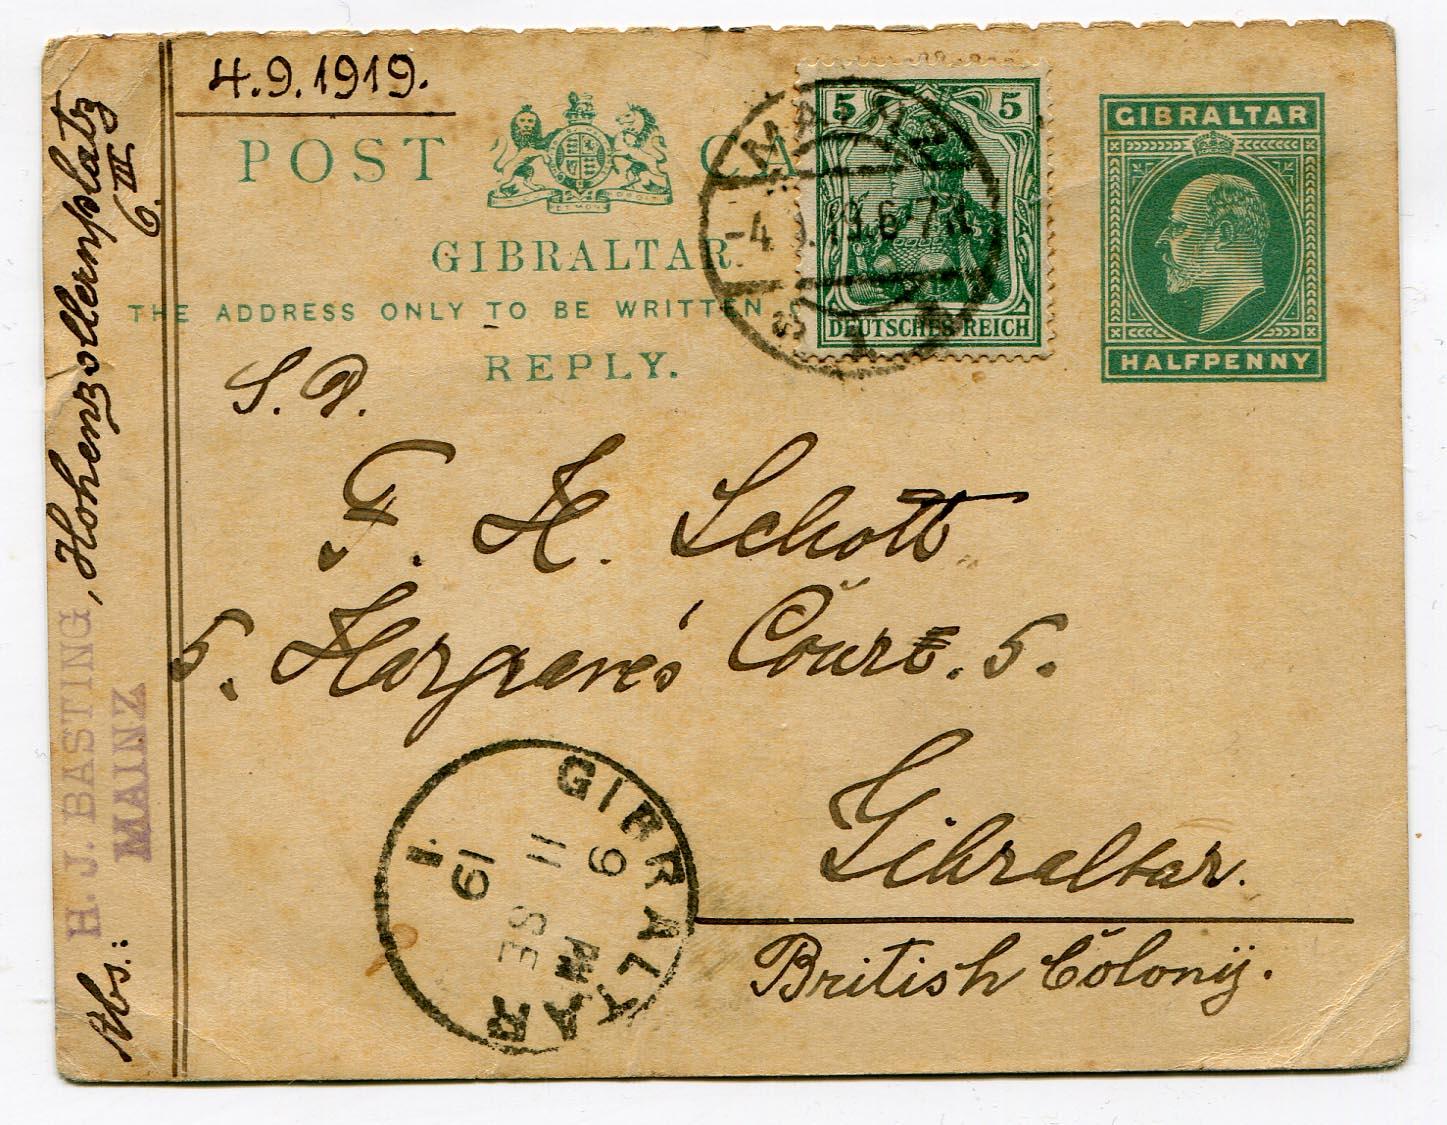 4.9.1919.
POST CA
GIBRALTAR.
THE ADDRESS ONLY TO BE WRITTEN
REPLY.
MAINZ
-4.9.19.6-7N.
5 5
DEUTSCHES REICH
GIBRALTAR
HALFPENNY
F. H. Schott
5. Hargrave's Court. 5.
Gibraltar.
British Colony.
GIBRALTAR
9 M
11 SE
19
1
Abs.: H. J. BASTING, Hohenzollernplatz
MAINZ 6. III.